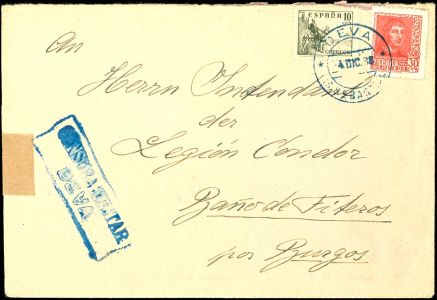 ESPAÑA 10
CORREOS
30
DEVA
4 DIC. 38
An
Herrn Intendant
der
Legión Condor
Baño de Fiteros
por Burgos
CENSURA MILITAR
DEVA